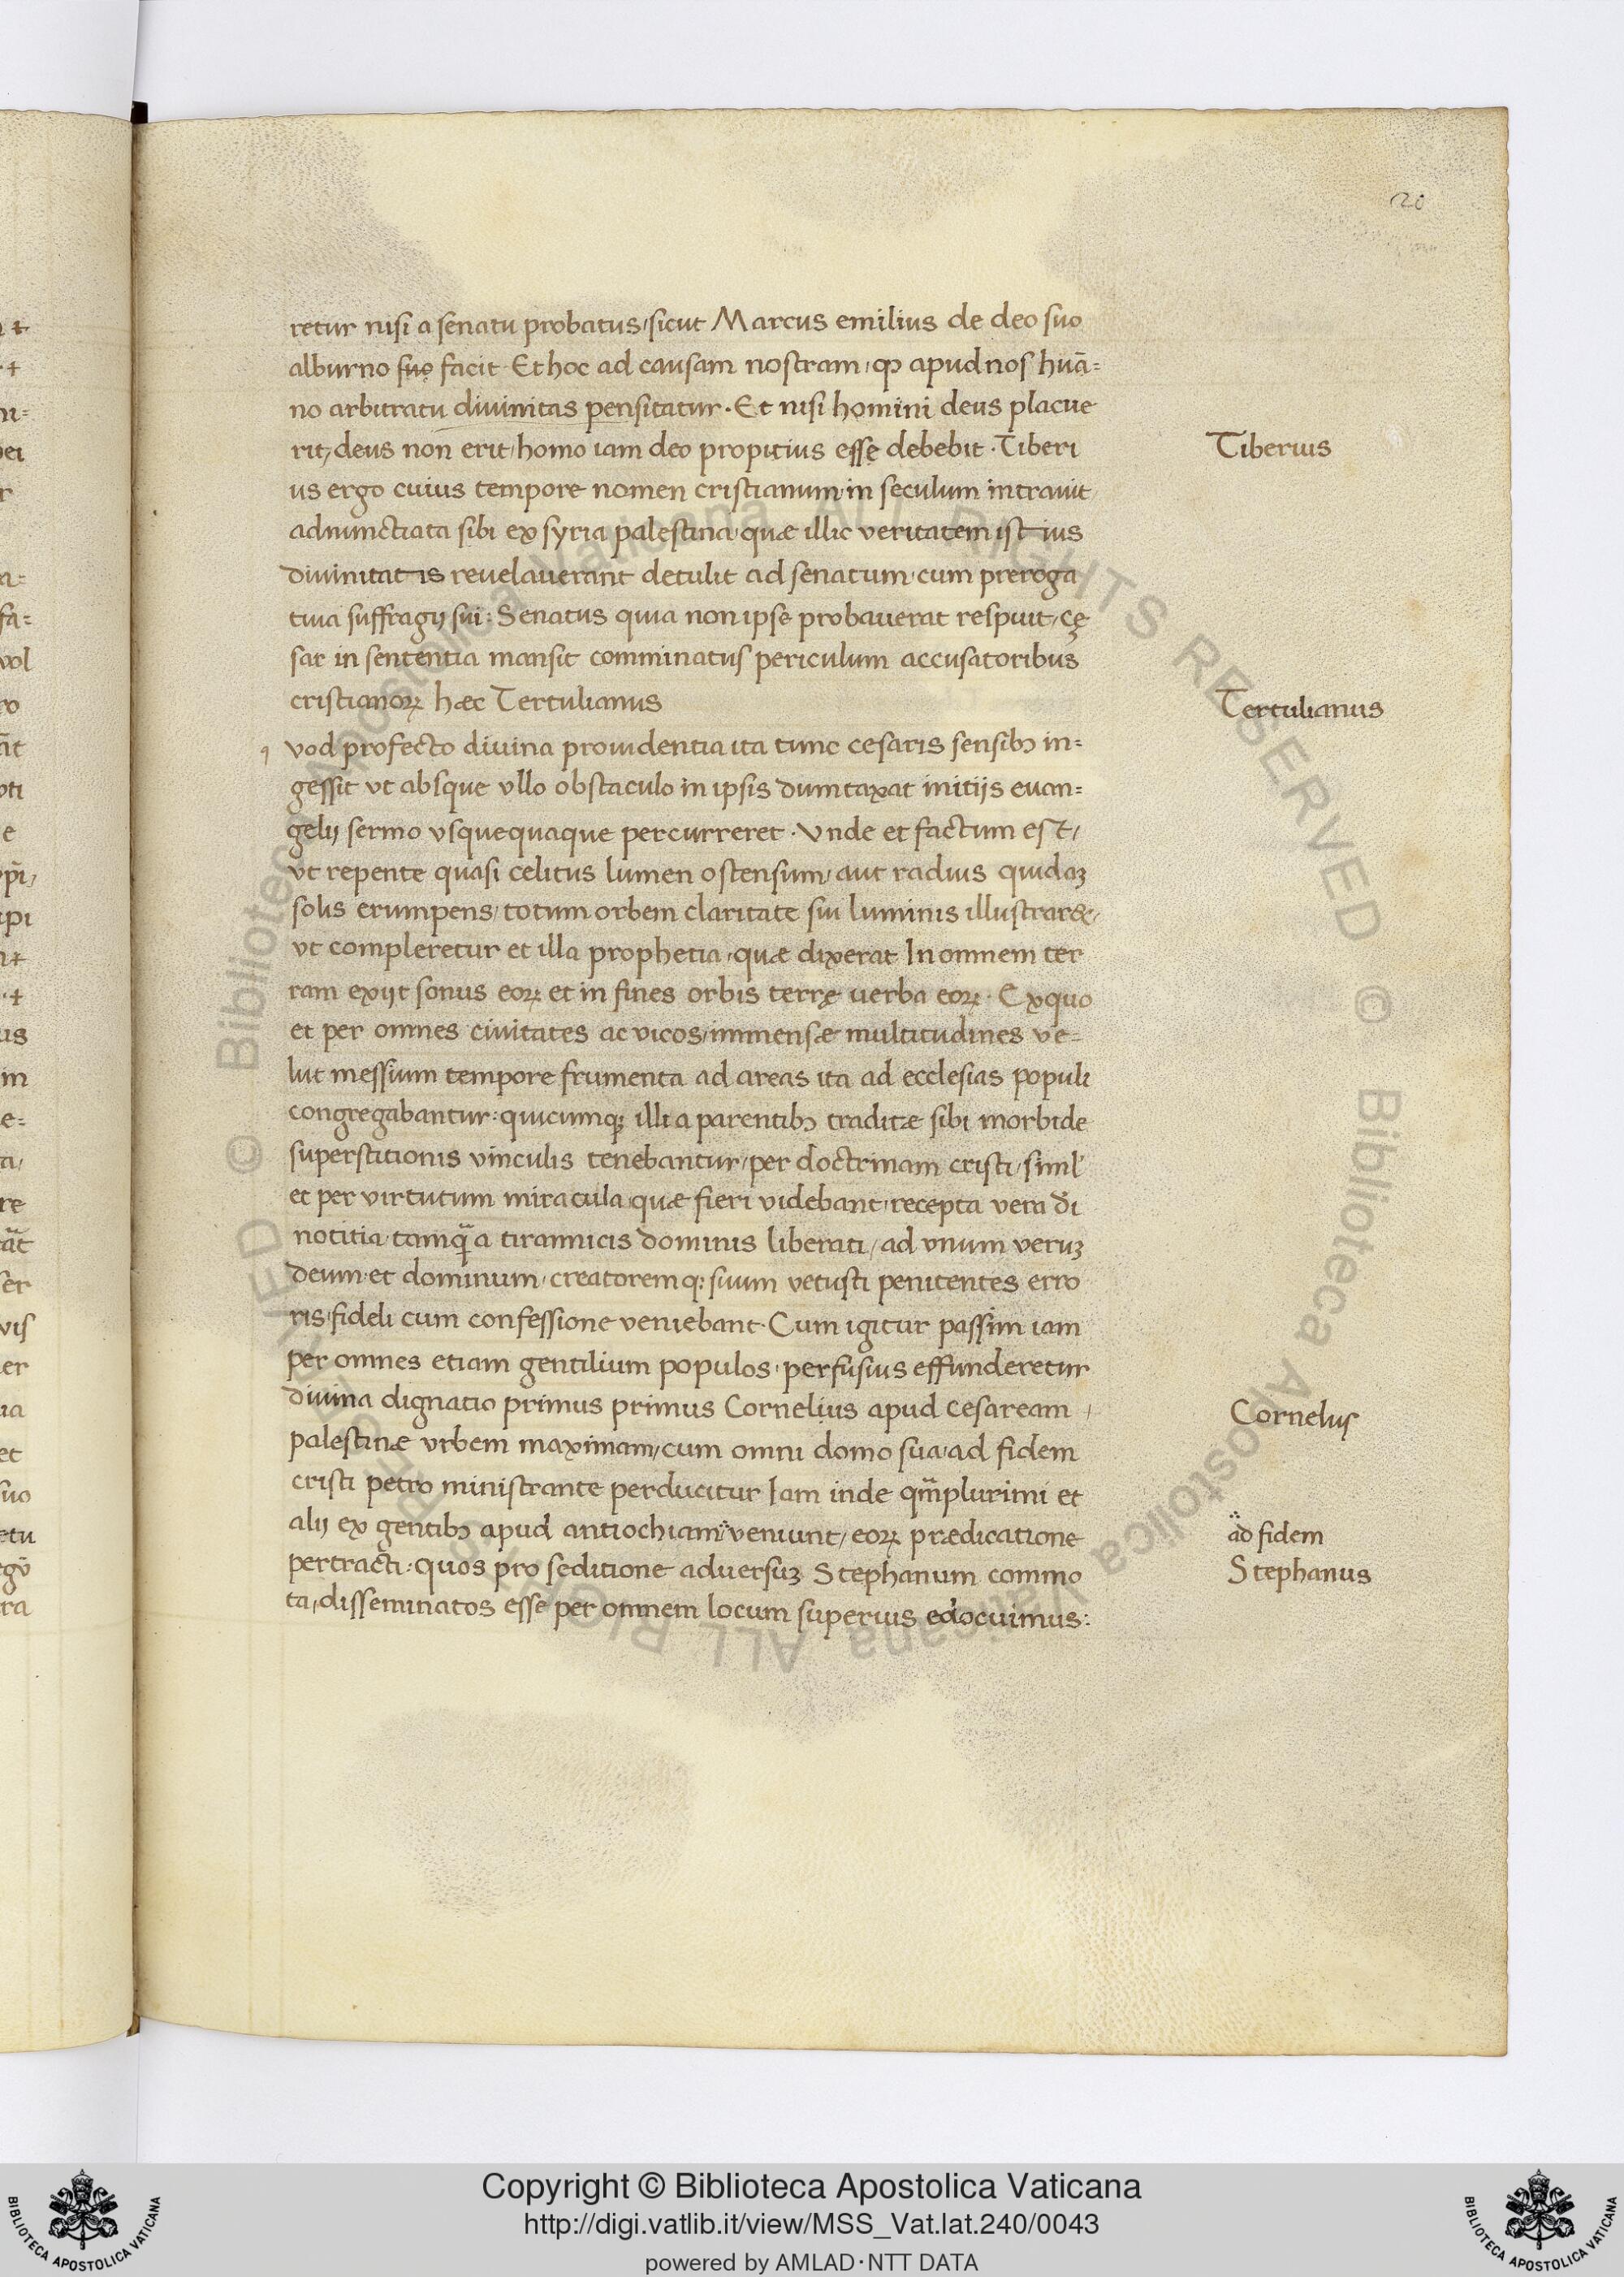 20
retur nisi a senatu probatus, sicut Marcus emilius de deo suo
alburno suo facit. Et hoc ad causam nostram, qꝫ apud nos huā=
no arbitratu divinitas pensitatur. Et nisi homini deus placue
rit, deus non erit, homo iam deo propitius esse debebit. Tiberi
Tiberius
us ergo cuius tempore nomen cristianum in seculum intravit
adnunctiata sibi ex syria palestina, quæ illic veritatem istius
divinitatis revelaverant detulit ad senatum, cum preroga
tiva suffragij sui: Senatus quia non ipse probauerat respuit, cę
sar in sententia mansit comminatus periculum accusatoribus
cristianoꝝ hæc Tertulianus
Tertulianus
q vod profecto divina providentia ita tunc cesaris sensibꝫ in=
gessit vt absque vllo obstaculo in ipsis dumtaxat initijs evan=
gelij sermo vsquequaque percurreret. Vnde et factum est,
vt repente quasi celitus lumen ostensum, aut radius quidaꝫ
solis erumpens, totum orbem claritate sui luminis illustraret,
vt compleretur et illa prophetia, quæ dixerat In omnem ter
ram exijt sonus eoꝝ et in fines orbis terrę uerba eoꝝ. Ex quo
et per omnes civitates ac vicos, immensæ multitudines ve=
lut messium tempore frumenta ad areas ita ad ecclesias populi
congregabantur: quicumqꝫ illi a parentibꝫ traditæ sibi morbide
superstitionis vinculis tenebantur, per doctrinam cristi, siml'
et per virtutum miracula quæ fieri videbant, recepta vera d̄i
notitia, tamq̃ a tirannicis dominis liberati, ad vnum veruꝫ
deum et dominum, creatoremqꝫ suum vetusti penitentes erro
ris, fideli cum confessione veniebant. Cum igitur passim iam
per omnes etiam gentilium populos, perfusius effunderetur
divina dignatio primus primus Cornelius apud cesaream,
Cornelus
palestinæ vrbem maximam, cum omni domo sua ad fidem
cristi petro ministrante perducitur Iam inde qm̃plurimi et
alij ex gentibꝫ apud antiochiam veniunt, eoꝝ prædicatione
ad fidem
pertracti: quos pro seditione adversuꝫ Stephanum commo
Stephanus
ta, disseminatos esse per omnem locum superius edocuimus:
Copyright © Biblioteca Apostolica Vaticana
http://digi.vatlib.it/view/MSS_Vat.lat.240/0043
powered by AMLAD·NTT DATA
BIBLIOTECA APOSTOLICA VATICANA
BIBLIOTECA APOSTOLICA VATICANA